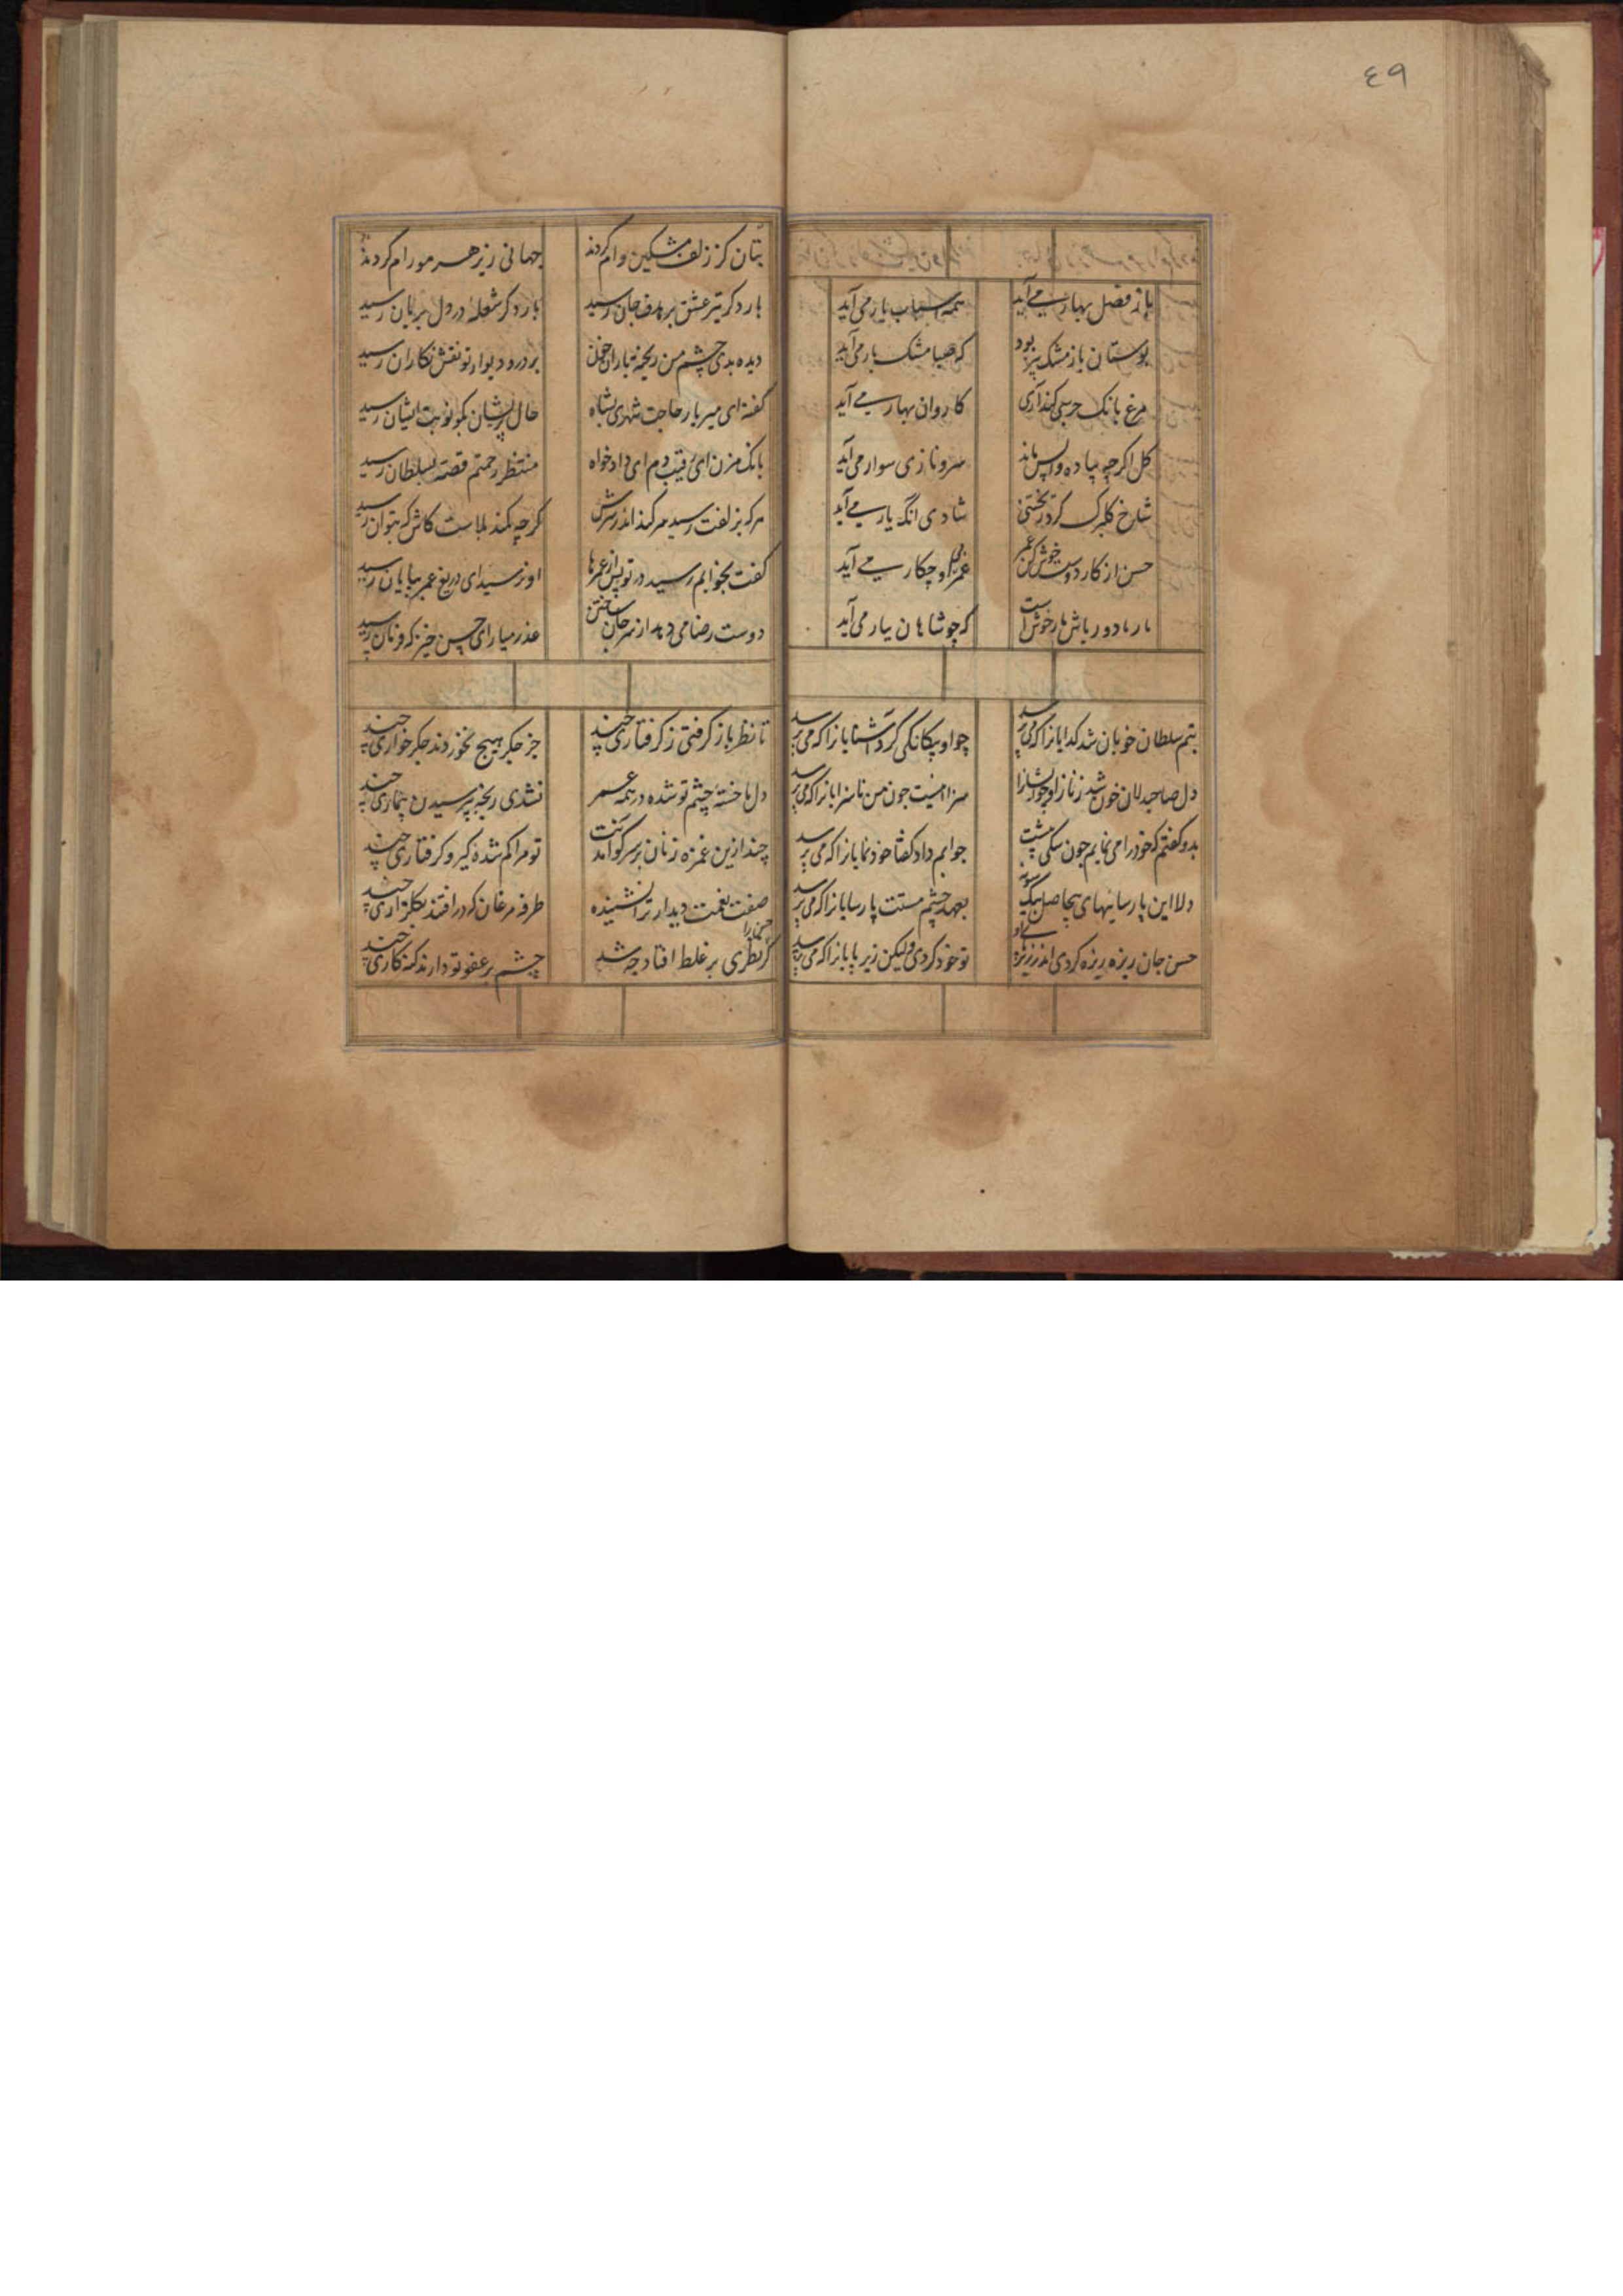 ٤٩
باز فصل بهار می آید همه اسباب یار می آید
بوستان باز مشک بیز بود که صبا مشک بار می آید
مرغ بانک جرس کند آری کاروان بهار می آید
کل اکرچه پیاده واپس ماند سرو نازی سوار می آید
شاخ کلبرک کرد شادی انک یار می آید
حسن از کار دوست خوش کن عمر غم او چکار می آید
مار ما دور باش مار خوش است که چو شاهان ببار می آید
بتم سلطان خوبان شد کدایانرا که می پرسد چو او بیکانکی کرد آشنایانرا که می پرسد
دل صاحبدلان خون شد ز ناز او سزا نیست جون من ناسزایانرا که می پرسد
بدو کفتم که خود را می نمایم جون سکی پیشت جوابم داد کفتا خودنمایانرا که می پرسد
دلا این پارسائیهای بیحاصل بعهد چشم مستت پارسایانرا که می پرسد
حسن جان ریزه ریزه کردی اندر زیر پای او تو خود کردی ولیکن زیر پایانرا که می پرسد
بتان کز زلف مشکین وام کردند جهانی زیر هر مو رام کردند
بار دکر تیر عشق بر هدف جان رسید بار دکر شعله در دل بریان رسید
دیده بدی چشم من ریخته باران خون بر در و دیوار تو نقش نکاران رسید
کفته ای میر بار حاجت شهری بشاه حال پریشان بکو نوبت ایشان رسید
بانک مزن ای رقیب دم ای دادخواه منتظر رحمتم قصه بسلطان رسید
هر که بزلفت رسید سر کند اندر سرش کرچه کمند بلاست کاش که بتوان رسید
کفت بخوابم رسید در تو پس از عمرها او نرسید ای دریغ عمر بپایان رسید
دوست رضا می دهد از سر جان خاستن عذر میار ای حسن خیز که فرمان رسید
تا نظر باز کرفتی ز کرفتاری چند جز جکر هیچ نخوردند جکر خواری چند
دل ما خستهٔ چشم تو شده در همه عمر نشدی رنجه بپرسیدن بیماری چند
چند ازین غمزه زنان بر سر کو آمدنت تو مرا کم شده کیر و کرفتاری چند
صفت نعمت دیدار ترا نشنیده طرفه مرغان که در افتند بکلزاری چند
کر نظری بر غلط افتاد چه شد حسن را چشم بر عفو تو دارند کنه کاری چند